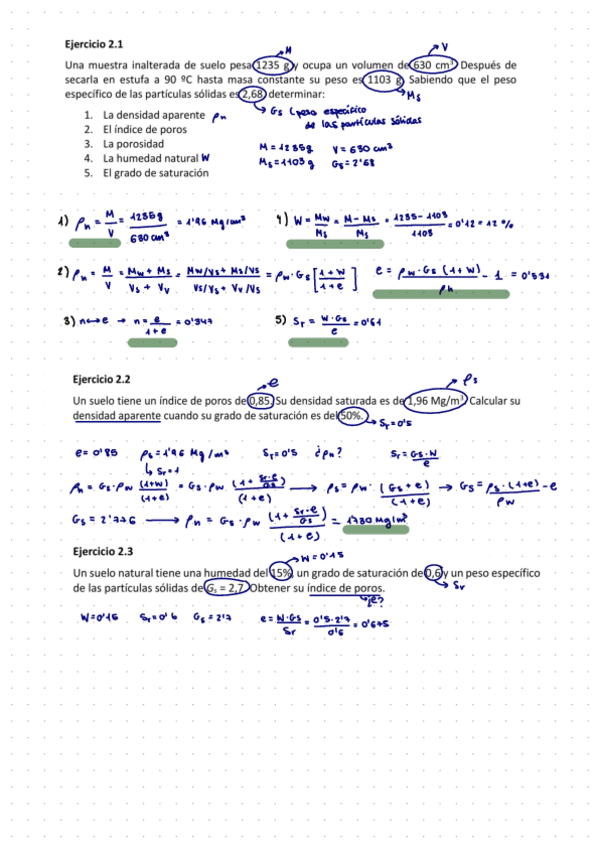 Ejercicio 2.1
M
V
Una muestra inalterada de suelo pesa 1235 g y ocupa un volumen de 630 cm³ Después de
secarla en estufa a 90 ºC hasta masa constante su peso es 1103 g Sabiendo que el peso
específico de las partículas sólidas es 2,68 determinar:
Ms
Gs (peso específico
de las partículas sólidas
1. La densidad aparente ρn
2. El índice de poros
3. La porosidad M = 1235g V = 630 cm³
4. La humedad natural W Ms = 1103 g Gs = 2'68
5. El grado de saturación
1) ρn = M/V = 1235g/630 cm³ = 1'96 Mg/cm³ 4) W = Mw/Ms = M-Ms/Ms = 1235-1103/1103 = 0'12 = 12 %
2) ρn = M/V = Mw + Ms/Vs + Vv = Mw/Vs + Ms/Vs/Vs/Vs + Vv/Vs = ρw·Gs [1+W/1+e] e = ρw·Gs (1+W)/ρn - 1 = 0'531
3) n↔e → n = e/1+e = 0'347 5) Sr = W·Gs/e = 0'61
Ejercicio 2.2
e
ρs
Un suelo tiene un índice de poros de 0,85. Su densidad saturada es de 1,96 Mg/m³ Calcular su
densidad aparente cuando su grado de saturación es del 50%. Sr = 0'5
e = 0'85 ρs = 1'96 Mg/m³ Sr = 0'5 ¿ρn? Sr = Gs·W/e
↳ Sr = 1
ρn = Gs·ρw (1+W)/(1+e) = Gs·ρw (1 + Sr·e/Gs)/(1+e) → ρs = ρw · (Gs+e)/(1+e) → Gs = ρs·(1+e)/ρw - e
Gs = 2'776 → ρn = Gs·ρw (1 + Sr·e/Gs)/(1+e) = 1730 Mg/m³
Ejercicio 2.3
W = 0'15
Un suelo natural tiene una humedad del 15%, un grado de saturación de 0,6 y un peso específico
Sr
de las partículas sólidas de Gs = 2,7 Obtener su índice de poros.
¿e?
W = 0'15 Sr = 0'6 Gs = 2'7 e = W·Gs/Sr = 0'15·2'7/0'6 = 0'675